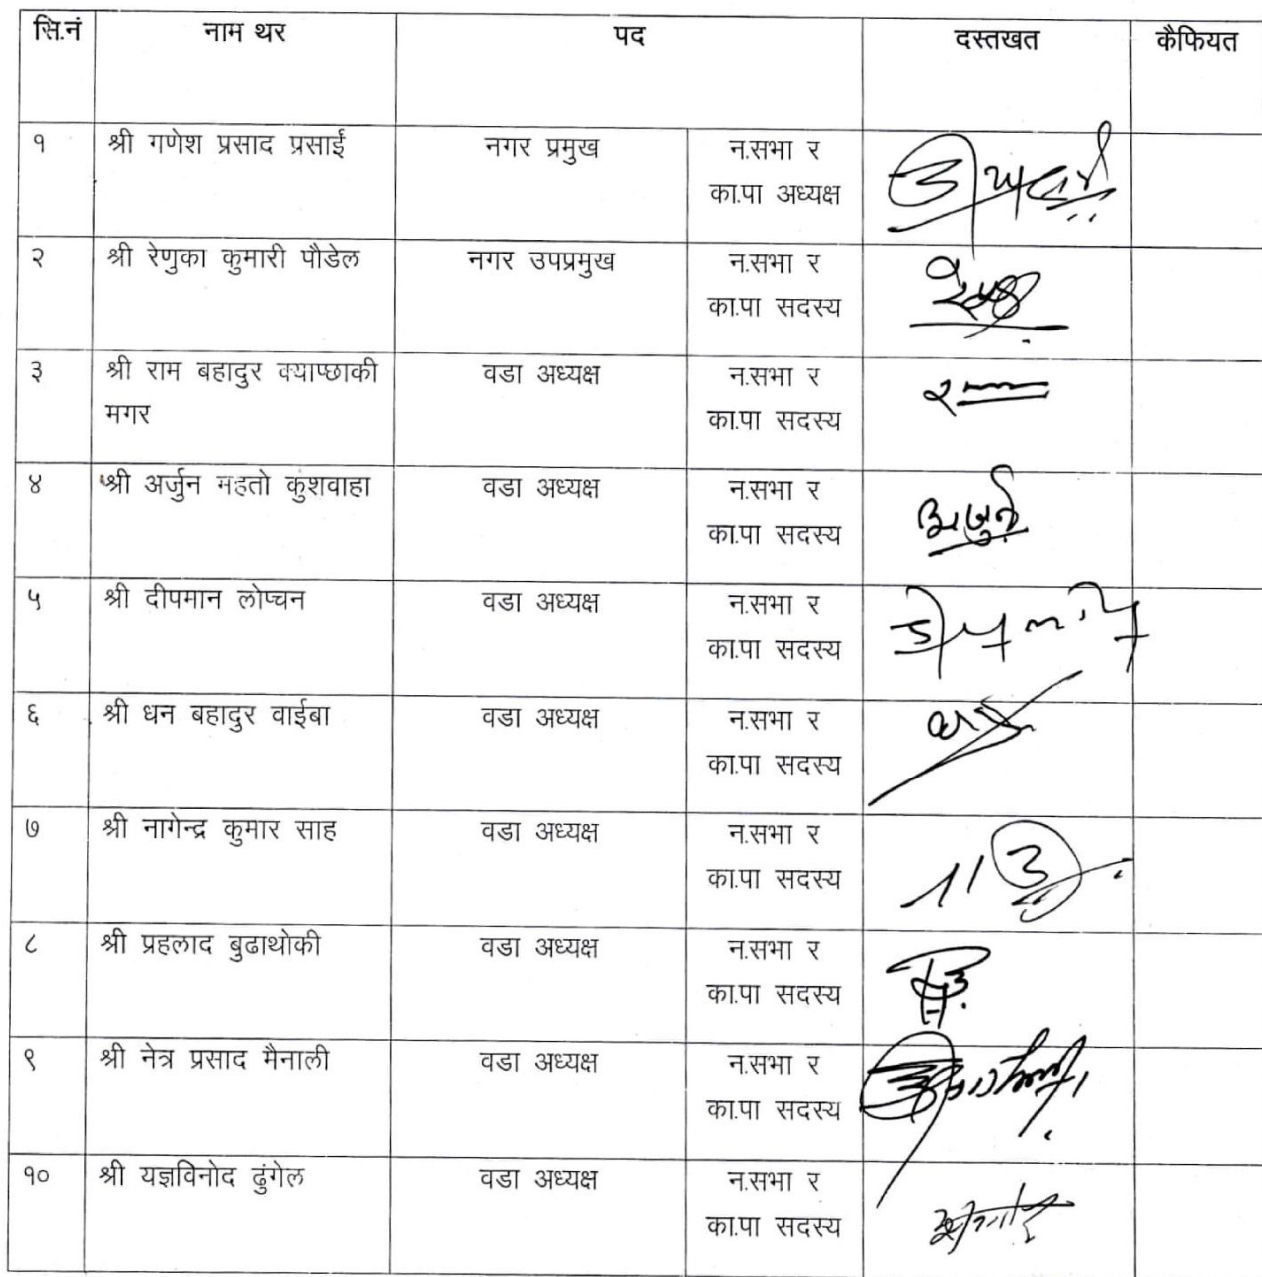 सि.नं नाम थर पद दस्तखत कैफियत
१ श्री गणेश प्रसाद प्रसाईं नगर प्रमुख न.सभा र
का.पा अध्यक्ष
२ श्री रेणुका कुमारी पौडेल नगर उपप्रमुख न.सभा र
का.पा सदस्य
३ श्री राम बहादुर क्याप्छाकी वडा अध्यक्ष न.सभा र
मगर का.पा सदस्य
४ श्री अर्जुन महतो कुशवाहा वडा अध्यक्ष न.सभा र
का.पा सदस्य अर्जुन
५ श्री दीपमान लोप्चन वडा अध्यक्ष न.सभा र
का.पा सदस्य
६ श्री धन बहादुर वाईबा वडा अध्यक्ष न.सभा र
का.पा सदस्य
७ श्री नागेन्द्र कुमार साह वडा अध्यक्ष न.सभा र
का.पा सदस्य
८ श्री प्रहलाद बुढाथोकी वडा अध्यक्ष न.सभा र
का.पा सदस्य
९ श्री नेत्र प्रसाद मैनाली वडा अध्यक्ष न.सभा र
का.पा सदस्य
१० श्री यज्ञविनोद ढुंगेल वडा अध्यक्ष न.सभा र
का.पा सदस्य